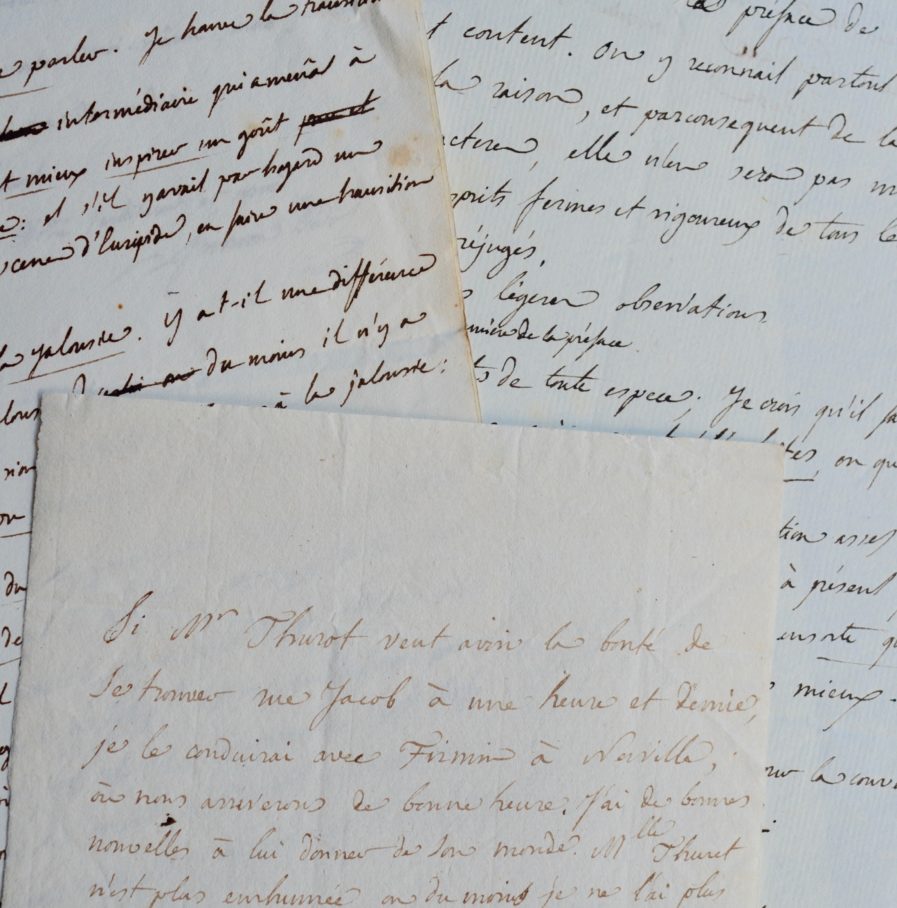 parler. Je hawe la transition
intermédiaire qui amenât à
mieux inspirer un goût
: et s'il y avait par hazard une
scene d'Euripide, en faire une transition
la jalousie. Y a t-il une différence
du moins il n'y a
à la jalousie:
du
de
préface de
content. On y reconnait partout
la raison, et par consequent de la
elle n'en sera pas m
esprits fermes et rigoureux de tous le
réjugés.
légeres observations
mière de la préface.
de toute espece; Je crois qu'il fa
on qu
tion asses
à présent,
ensorte qu
mieux -
la couv
Si Mr Thurot veut avoir la bonté de
se trouver rue Jacob à une heure et demie,
je le conduirai avec Firmin à Norville;
où nous arriverons de bonne heure. J'ai de bonnes
nouvelles à lui donner de son monde. Mlle Thurot
n'est plus enrhumée ou du moins je ne l'ai plus